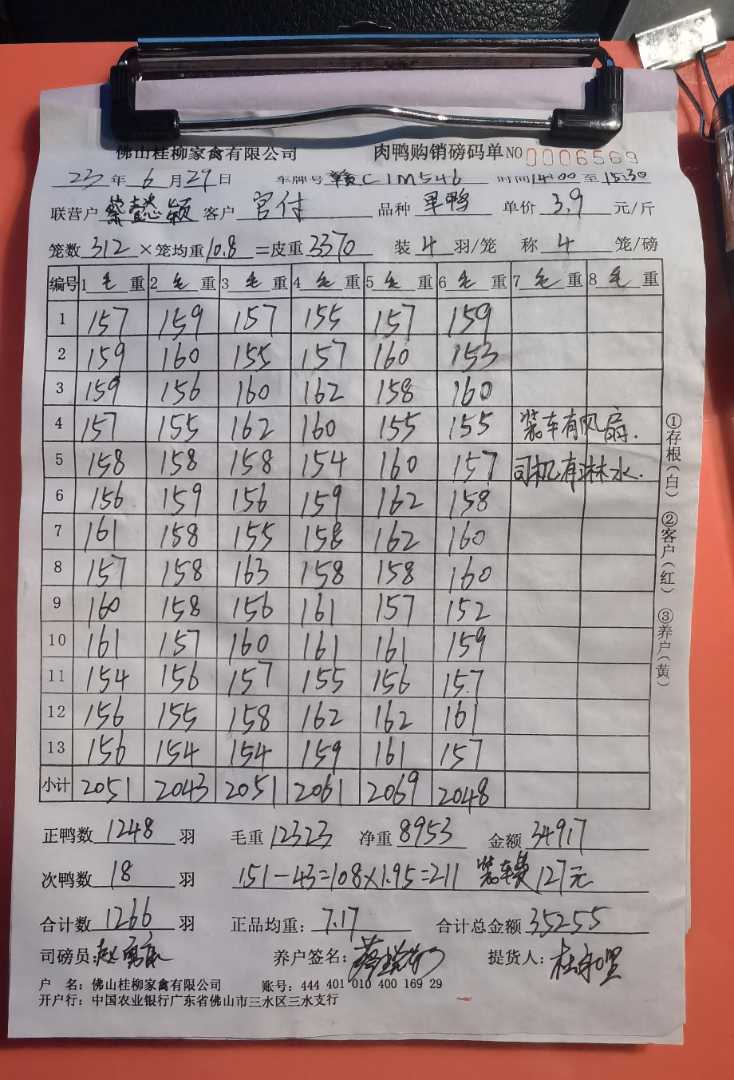 佛山桂柳家禽有限公司 肉鸭购销磅码单 NO 0006569
23 年 6 月 29 日 车牌号 赣C1M546 时间 14:00 至 15:30
联营户 蔡懿颖 客户 宫付 品种 旱鸭 单价 3.9 元/斤
笼数 312 ×笼均重 10.8 =皮重 3370 装 4 羽/笼 称 4 笼/磅
编号 1 毛 重 2 毛 重 3 毛 重 4 毛 重 5 毛 重 6 毛 重 7 毛 重 8 毛 重
1 157 159 157 155 157 159
2 159 160 155 157 160 153
3 159 156 160 162 158 160
4 157 155 162 160 155 155 装车有风扇.
5 158 158 158 154 160 157 司机有淋水.
6 156 159 156 159 162 158
7 161 158 155 158 162 160
8 157 158 163 158 158 160
9 160 158 156 161 157 152
10 161 157 160 161 161 159
11 154 156 157 155 156 157
12 156 155 158 162 162 161
13 156 154 154 159 161 157
小计 2051 2043 2051 2061 2069 2048
正鸭数 1248 羽 毛重 12323 净重 8953 金额 34917
次鸭数 18 羽 151-43=108×1.95=211 装车费 127元
合计数 1266 羽 正品均重: 7.17 合计总金额 35255
司磅员: 养户签名: 提货人:
户 名: 佛山桂柳家禽有限公司 账号: 444 401 010 400 169 29
开户行: 中国农业银行广东省佛山市三水区三水支行
①存根(白) ②客户(红) ③养户(黄)